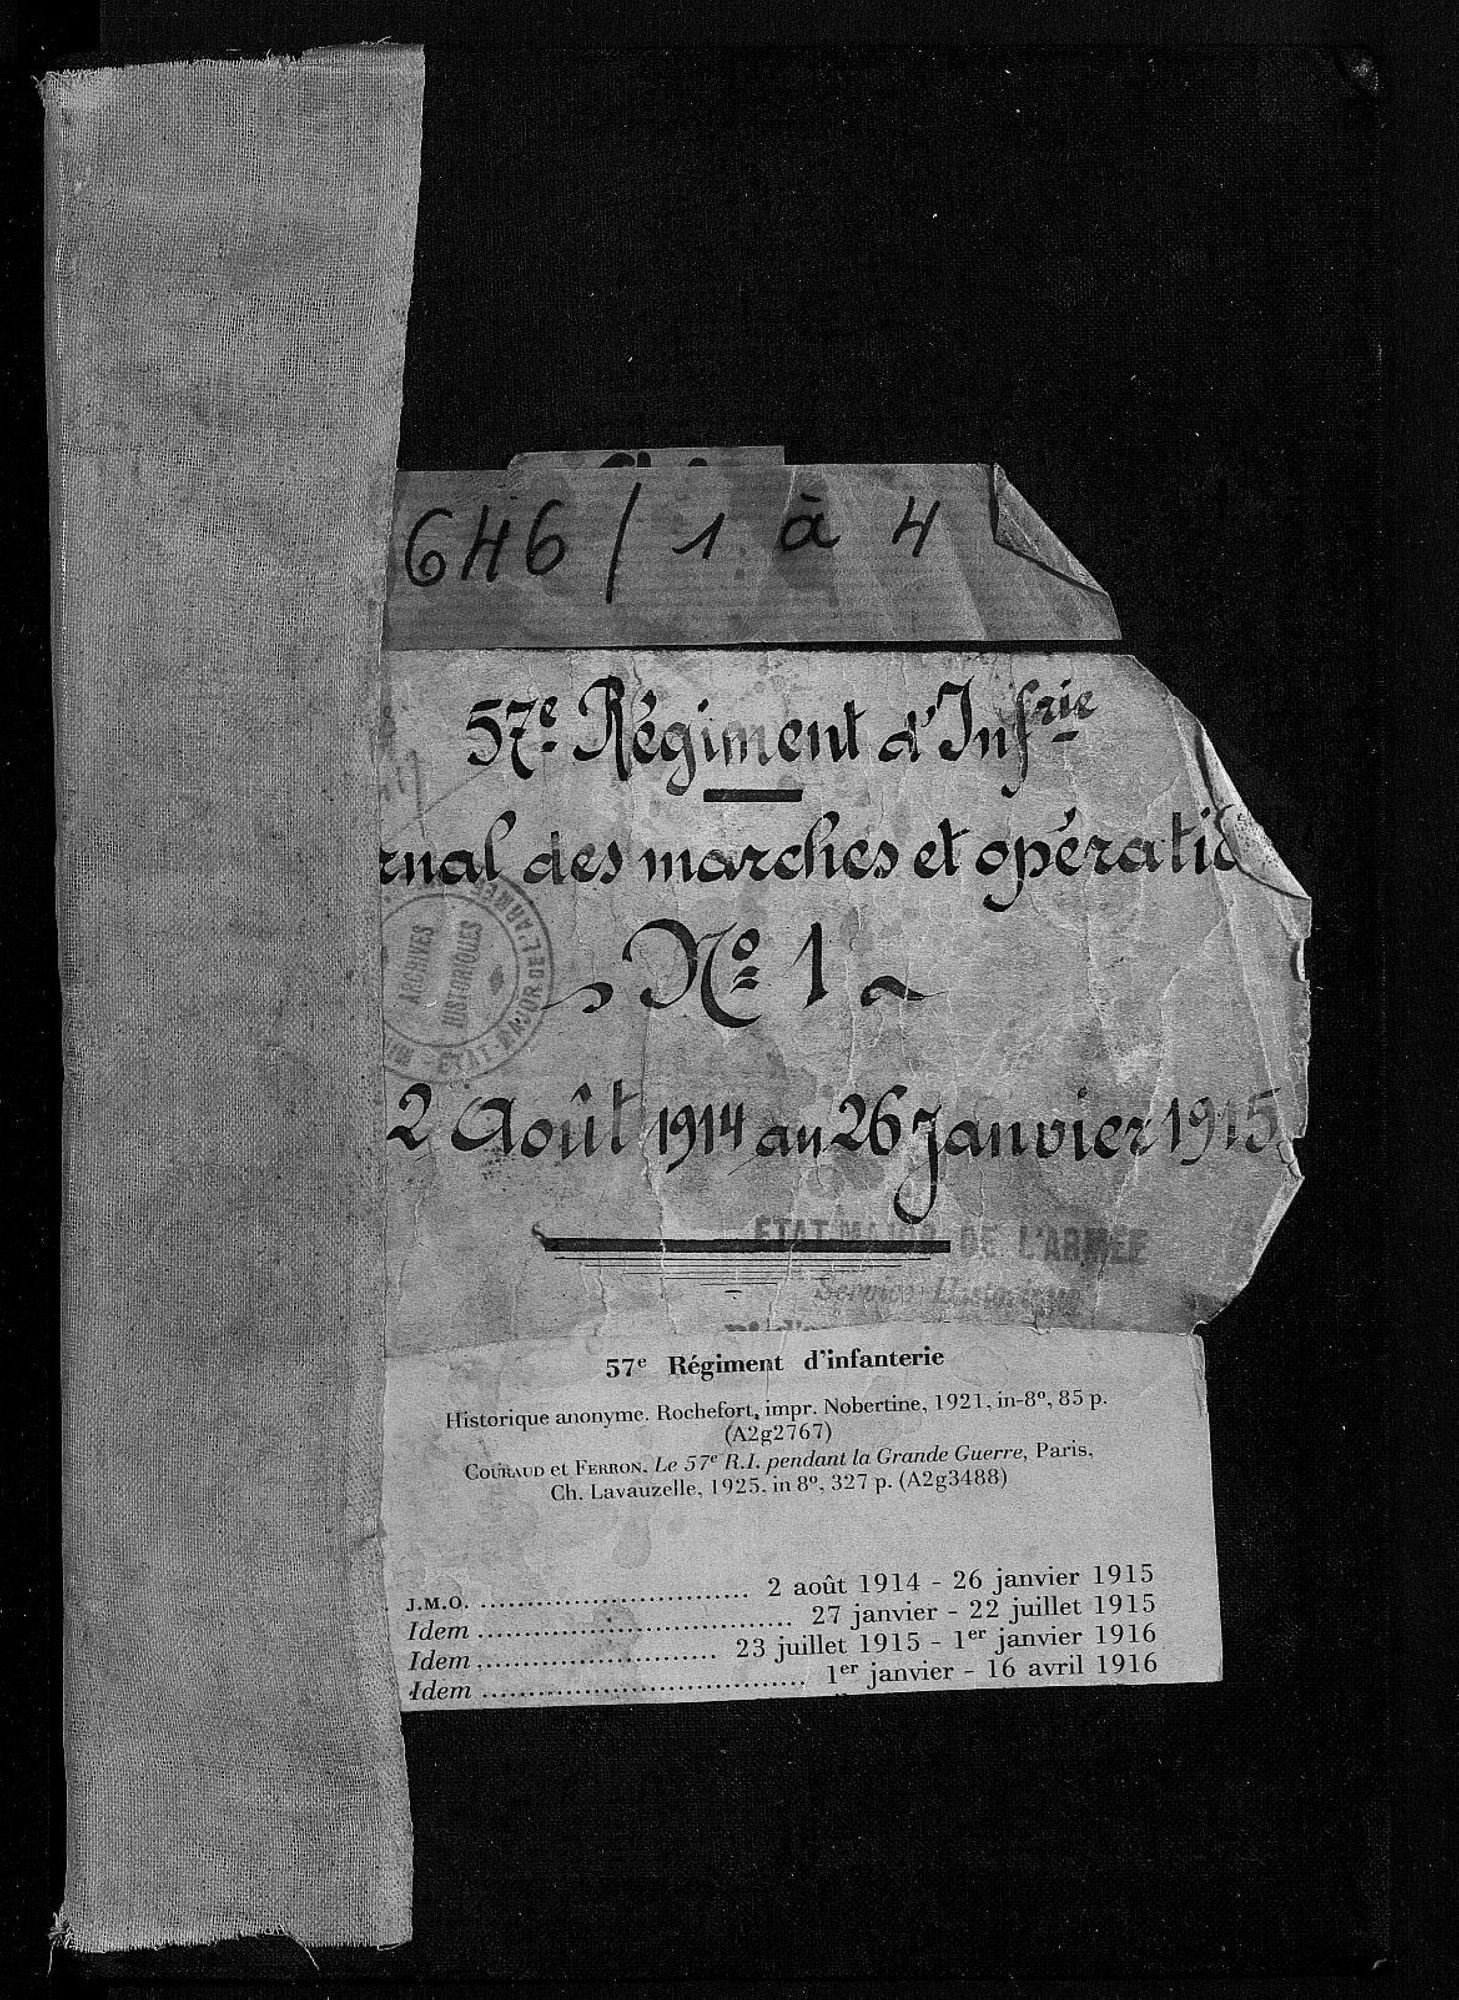 646 / 1 à 4
57e Régiment d'Infrie
rnal des marches et opératio
No 1
2 Août 1914 au 26 Janvier 1915
ARCHIVES
HISTORIQUES
ETAT-MAJOR DE L'ARMÉE
ETAT MAJOR DE L'ARMÉE
Service Historique
57e Régiment d'infanterie
Historique anonyme. Rochefort, impr. Nobertine, 1921, in-8º, 85 p.
(A2g2767)
COURAUD et FERRON, Le 57e R.I. pendant la Grande Guerre, Paris,
Ch. Lavauzelle, 1925, in 8º, 327 p. (A2g3488)
J.M.O. .............................. 2 août 1914 - 26 janvier 1915
Idem .................................. 27 janvier - 22 juillet 1915
Idem .......................... 23 juillet 1915 - 1er janvier 1916
Idem ................................... 1er janvier - 16 avril 1916